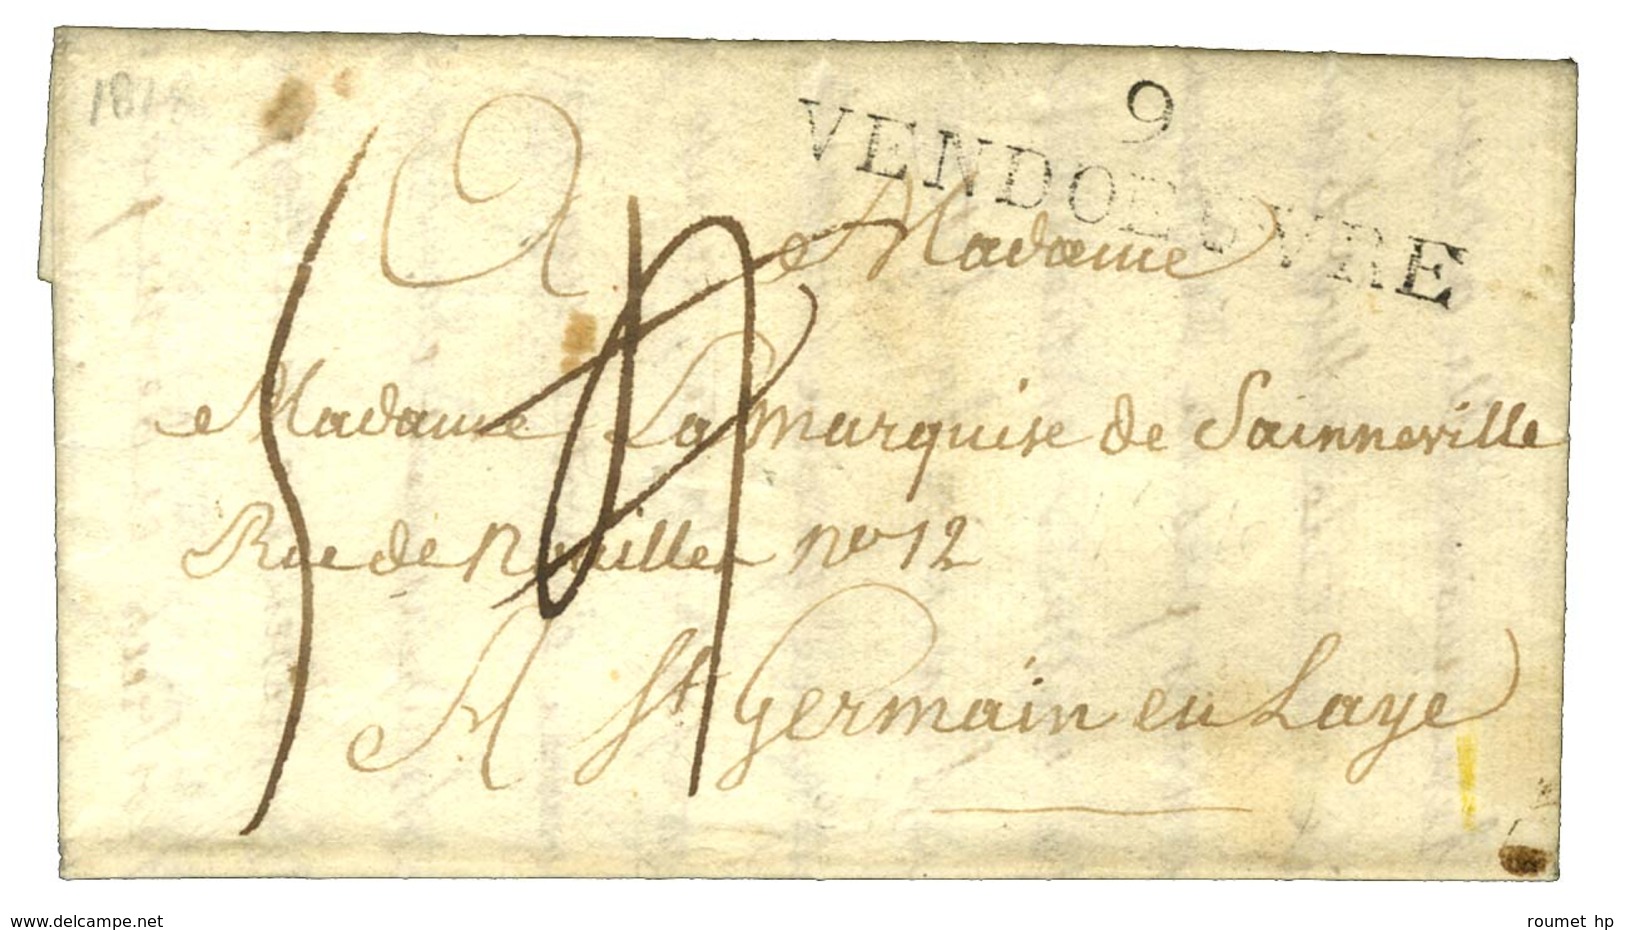 1818
9
VENDOEUVRE
A Madame
Madame La marquise de Sainneville
Rue de Noailles no 12
A St Germain en Laye
www.delcampe.net
roumet hp